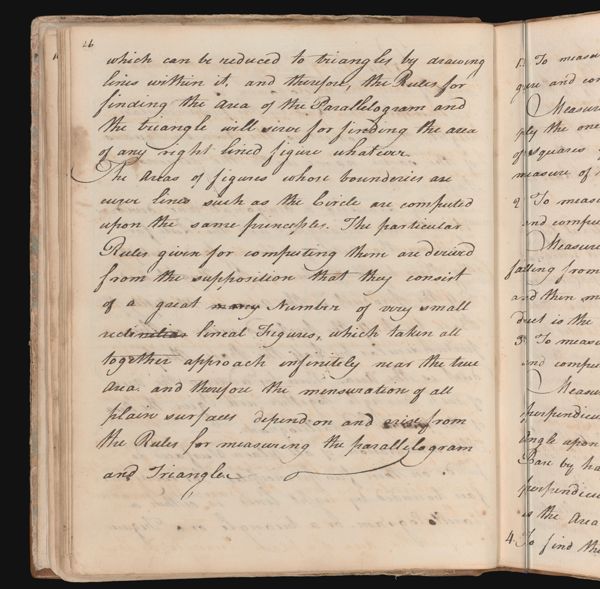 26
which can be reduced to triangles by drawing
lines within it, and therefore, the Rules for
finding the area of the Parallelogram and
the triangle will serve for finding the area
of any right lined figure whatever.
The Areas of figures whose bounderies are
curve lines such as the Circle are computed
upon the same principles. The particular
Rules given for computing them are derived
from the supposition that they consist
of a great many Number of very small
rectinilear lineal Figures, which taken all
together approach infinitely near the true
Area and therefore the mensuration of all
plain surfaces depend on and from
the Rules for measuring the parallelogram
and Triangle
1 To measu
gure and com
Measur
ply the one
of squares
measure of
2 To measu
and compu
Measure
falling from
and then m
duct is the
3 To measu
and compu
Measu
perpendicu
angle upon
Base by ha
perpendicu
is the Area
4. To find the